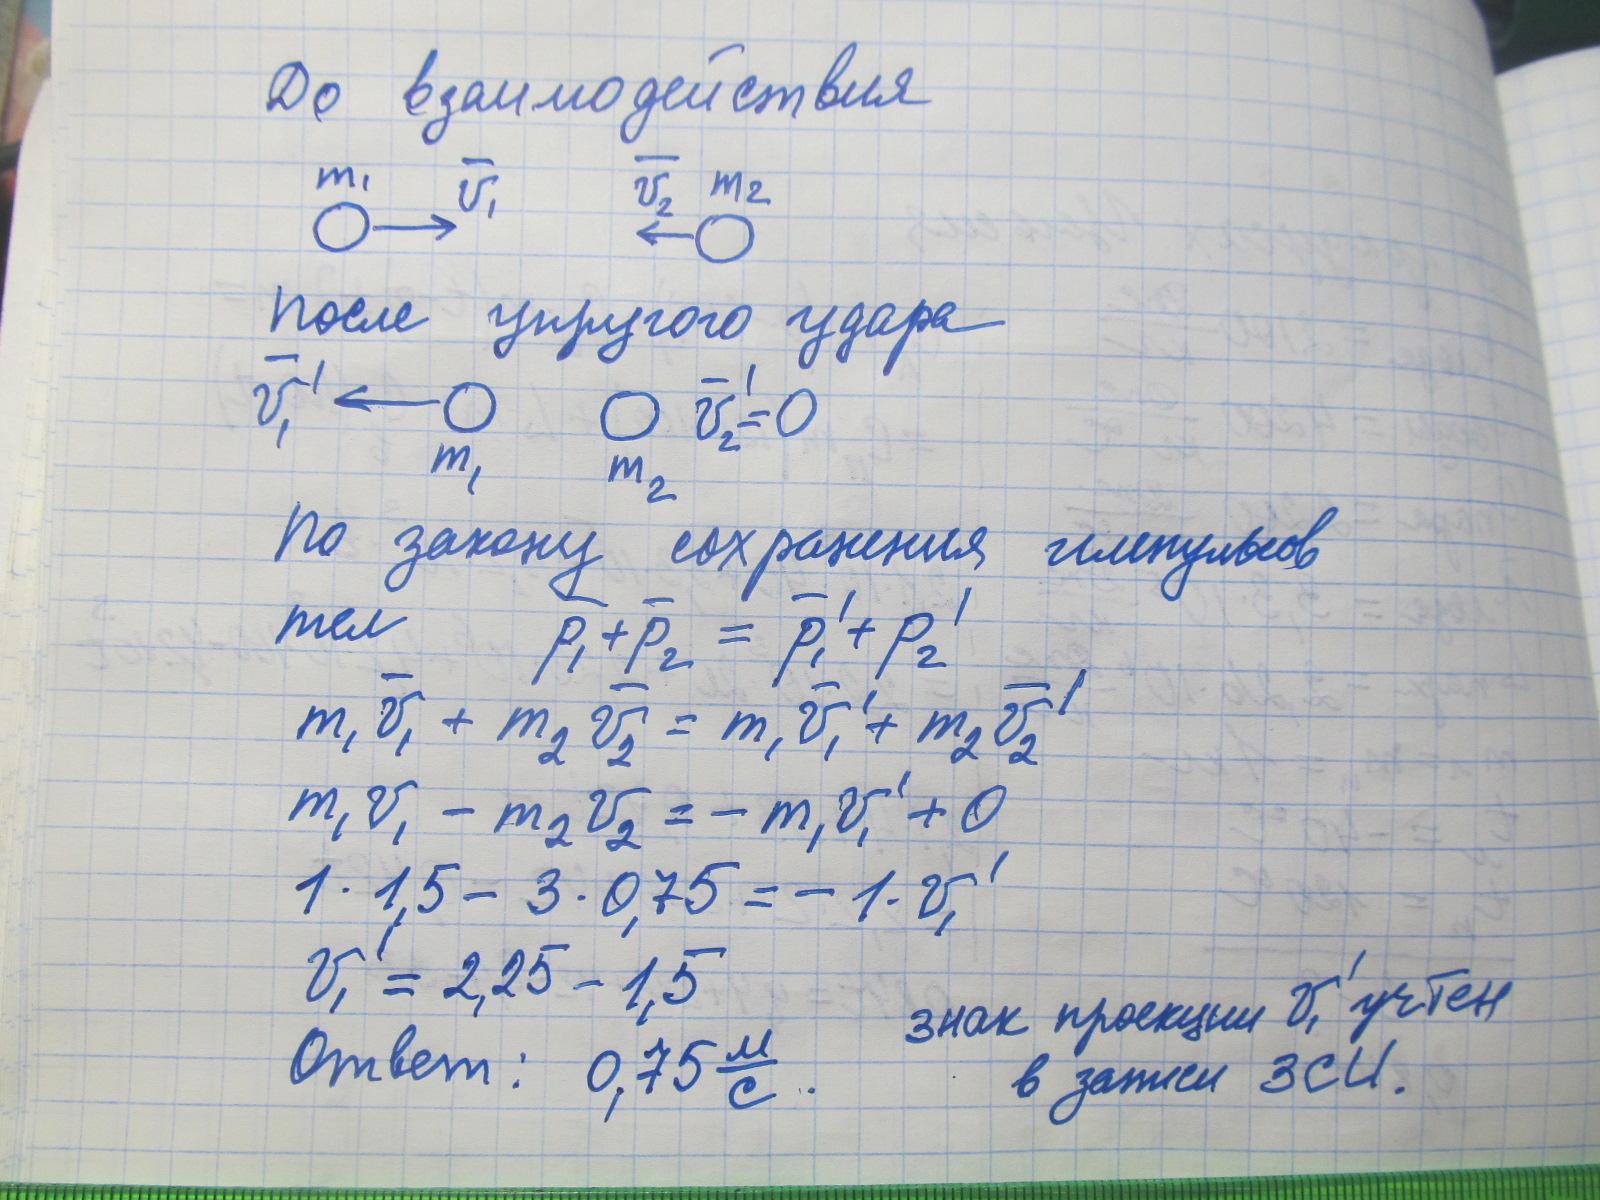 До взаимодействия
m₁ v̅₁ v̅₂ m₂
После упругого удара
v̅₁' m₁ m₂ v̅₂'=0
По закону сохранения импульсов
тел p̅₁ + p̅₂ = p̅₁' + p₂'
m₁v̅₁ + m₂v̅₂ = m₁v̅₁' + m₂v̅₂'
m₁v₁ - m₂v₂ = - m₁v₁' + 0
1·1,5 - 3·0,75 = - 1·v₁'
v₁' = 2,25 - 1,5
Ответ: 0,75 м/с.
знак проекции v₁' учтен
в записи ЗСИ.